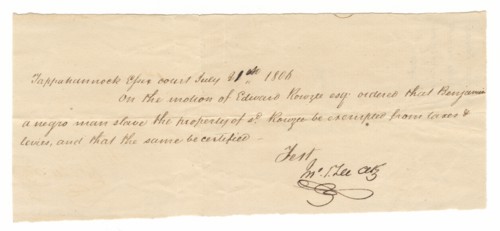 Tappahannock Essex court July 21st 1806
On the motion of Edward Rowzee esqr ordered that Benjamin
a negro man slave the property of sd. Rowzee be exempted from taxes &
levies, and that the same be certified
Test
Jno. P. Lee Clk